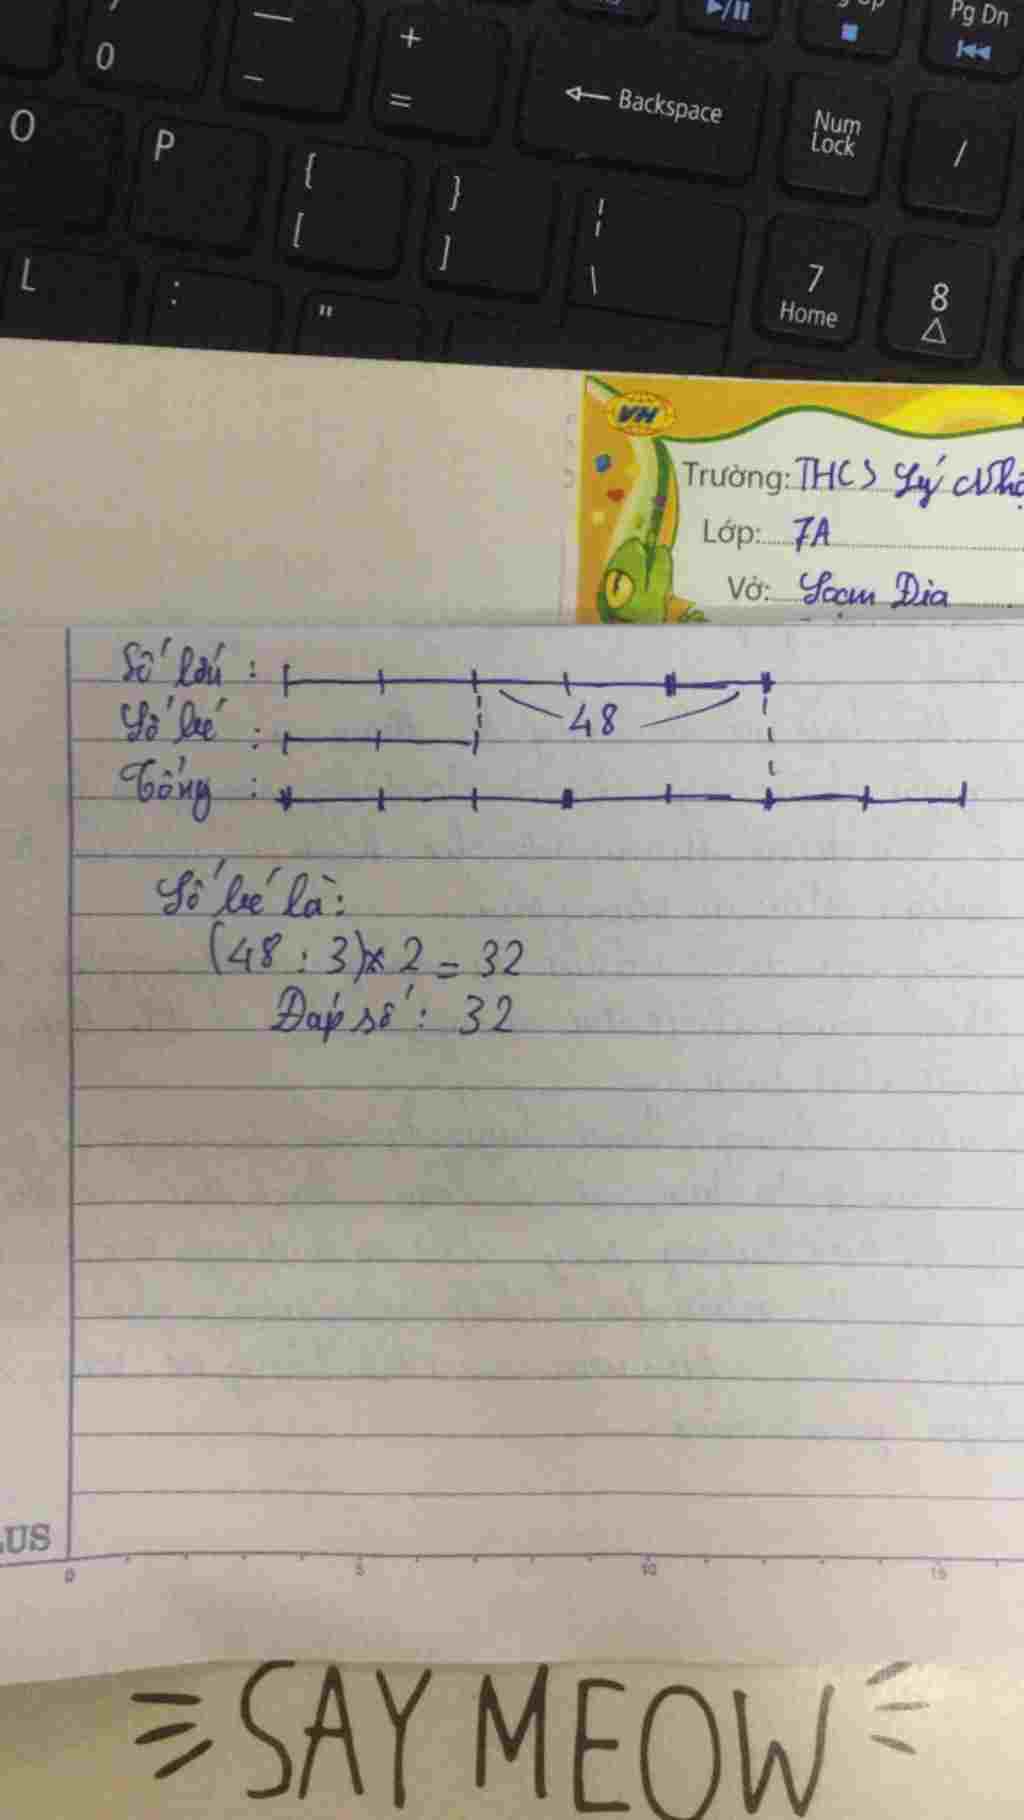 0
—
–
+
=
← Backspace
Pg Dn
Num
Lock
/
O
P
{
[
}
]
¦
\
7
Home
8
L
:
"
VH
Trường: THCS Lý
Lớp: 7A
Vở: Địa
Số lớn :
Số bé :
48
Tổng :
Số bé là:
(48 : 3) x 2 = 32
Đáp số : 32
LUS
0 5 10 15
SAY MEOW